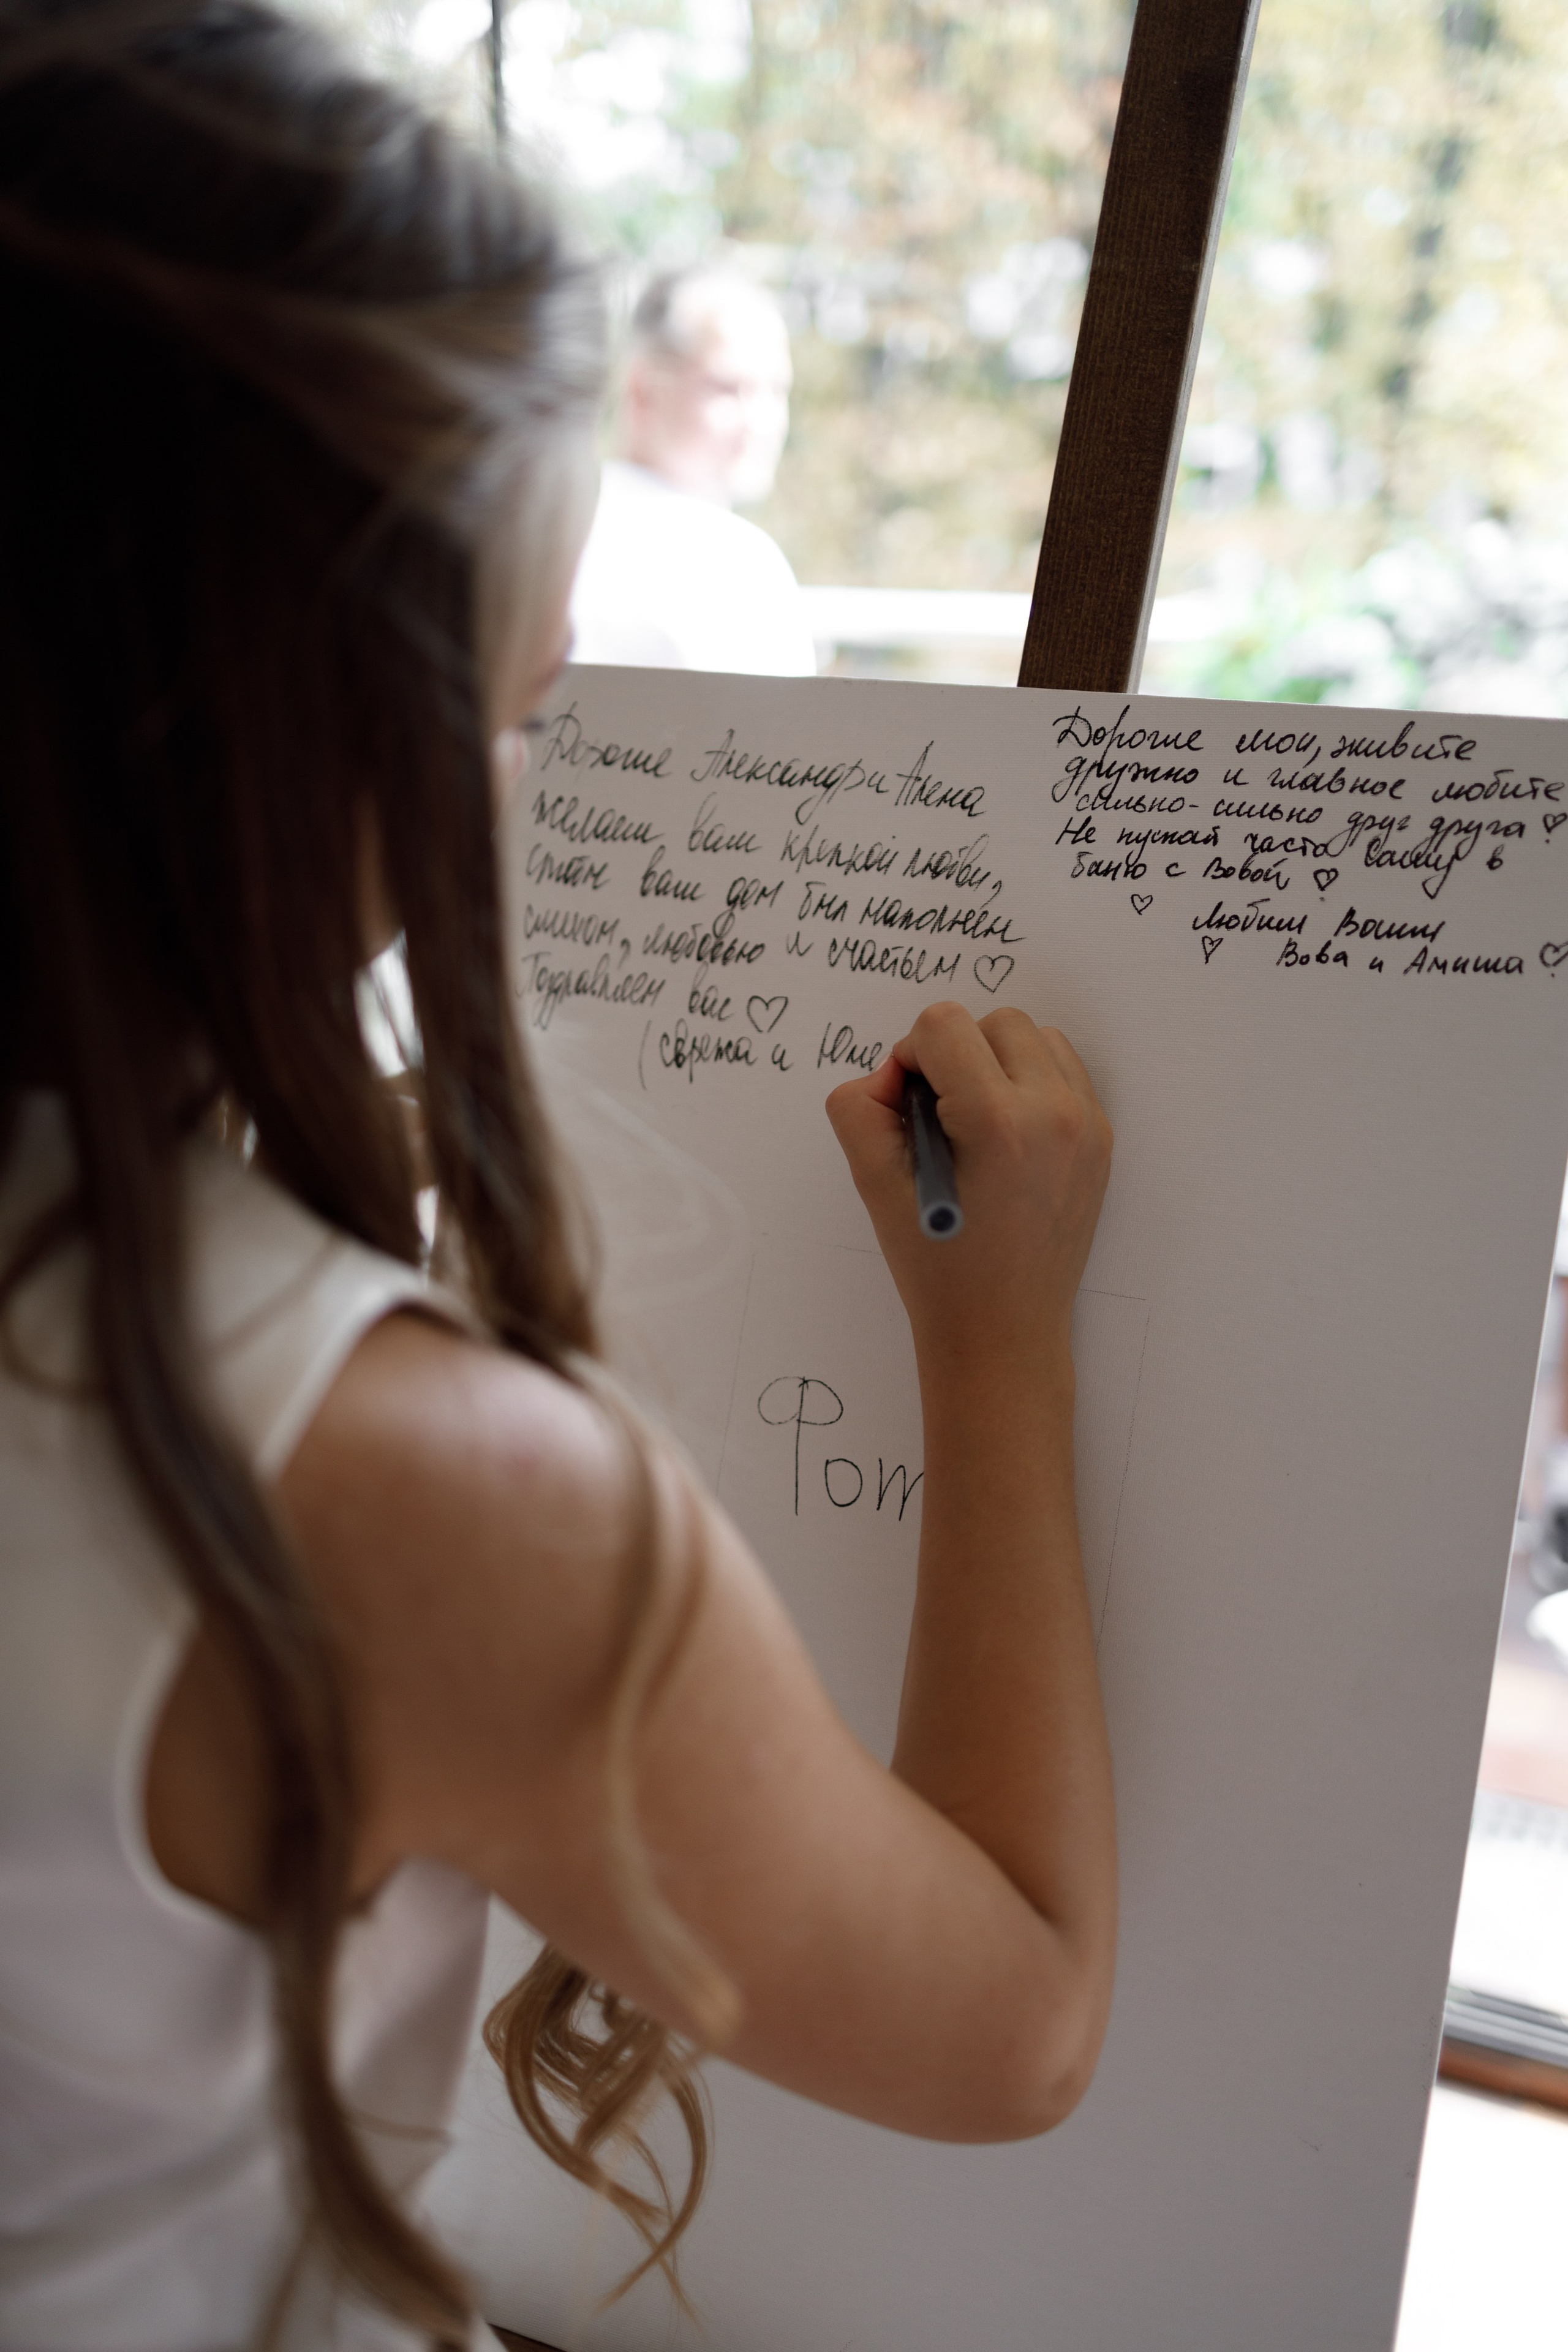 Дорогие Александр и Алена
желаем вам крепкой любви,
чтобы ваш дом был наполнен
смехом, любовью и счастьем ♡
Поздравляем вас ♡
(Сережа и Юле
Дорогие мои, живите
дружно и главное любите
сильно-сильно друг друга ♡
Не пускай часто Сашу в
баню с Вовой ♡
♡ Любим Ваши
♡ Вова и Амина ♡
Фот